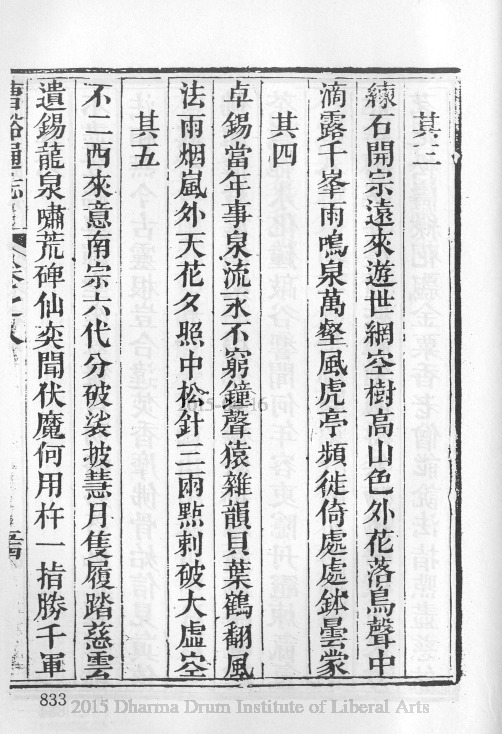 其三
練石開宗遠來遊世網空樹高山色外花落鳥聲中
滴露千峯雨鳴泉萬壑風虎亭頻徙倚處處鉢曇蒙
其四
卓錫當年事泉流永不窮鐘聲猿雜韻貝葉鶴翻風
法雨烟嵐外天花夕照中松針三兩點刺破大虛空
其五
不二西來意南宗六代分破袈披慧月隻履踏慈雲
遺錫龍泉嘯荒碑仙奕聞伏魔何用杵一指勝千軍
曹谿通志 卷之八
833
2015 Dharma Drum Institute of Liberal Arts